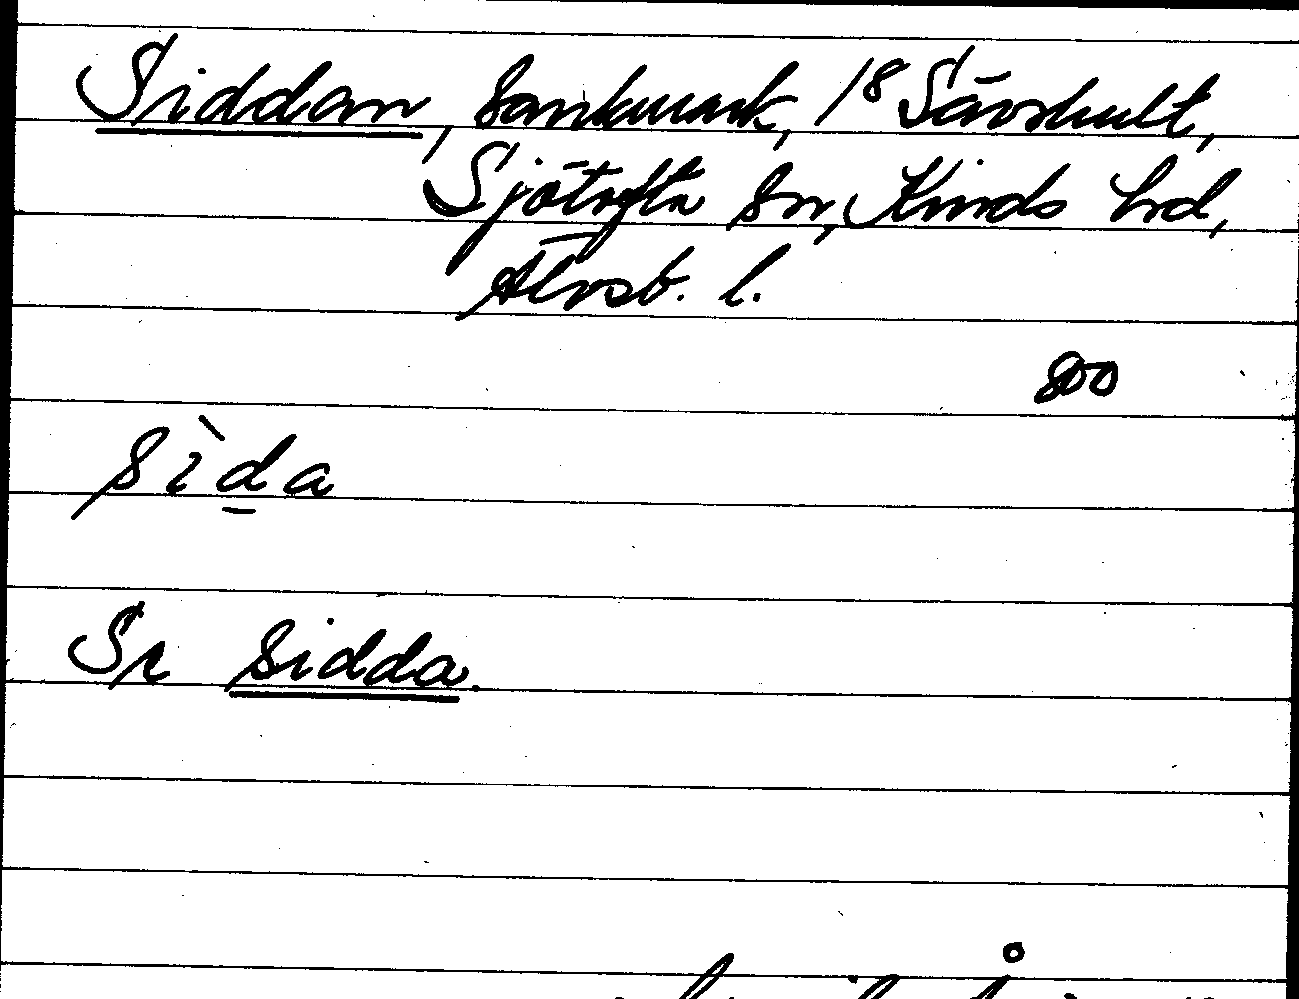 Siddan, sankmark, 1⁸ Sävshult,
Sjötofta sn, Kinds hd,
Älvsb. l.
sìd̲a
Sr sidda.